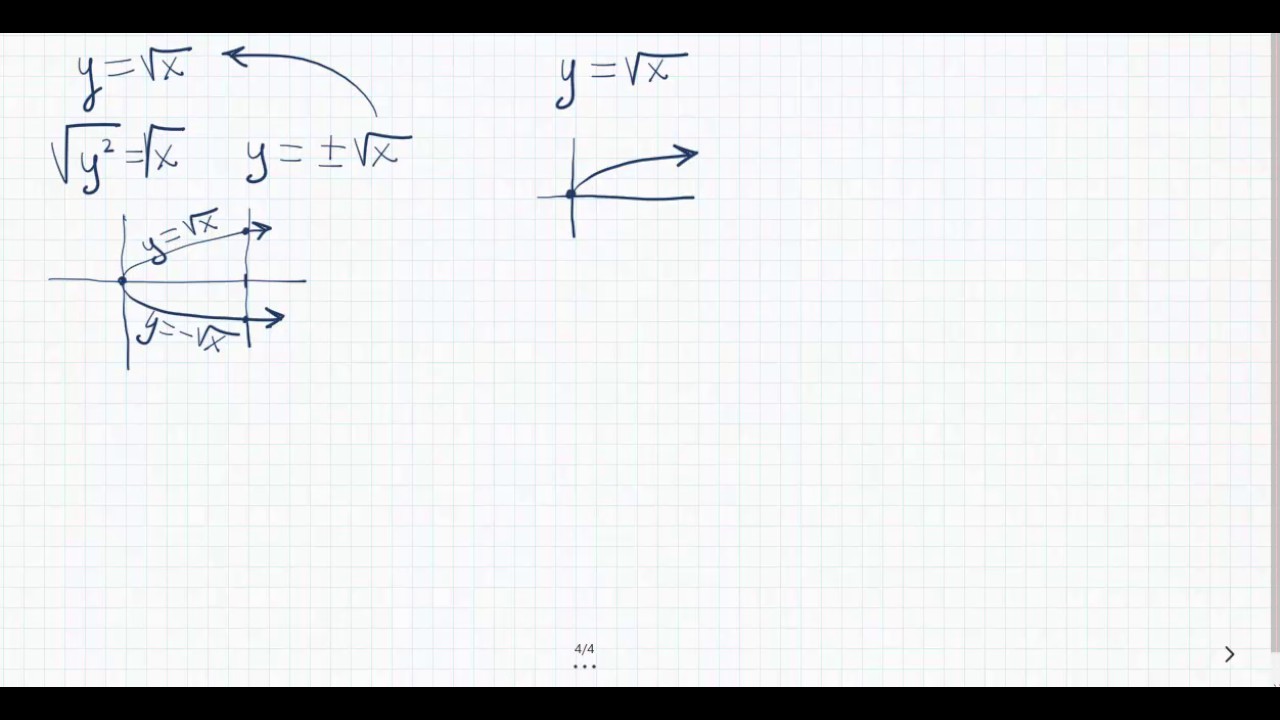 y = √x
√y² = √x    y = ±√x
y = √x
y = -√x
y = √x
4/4